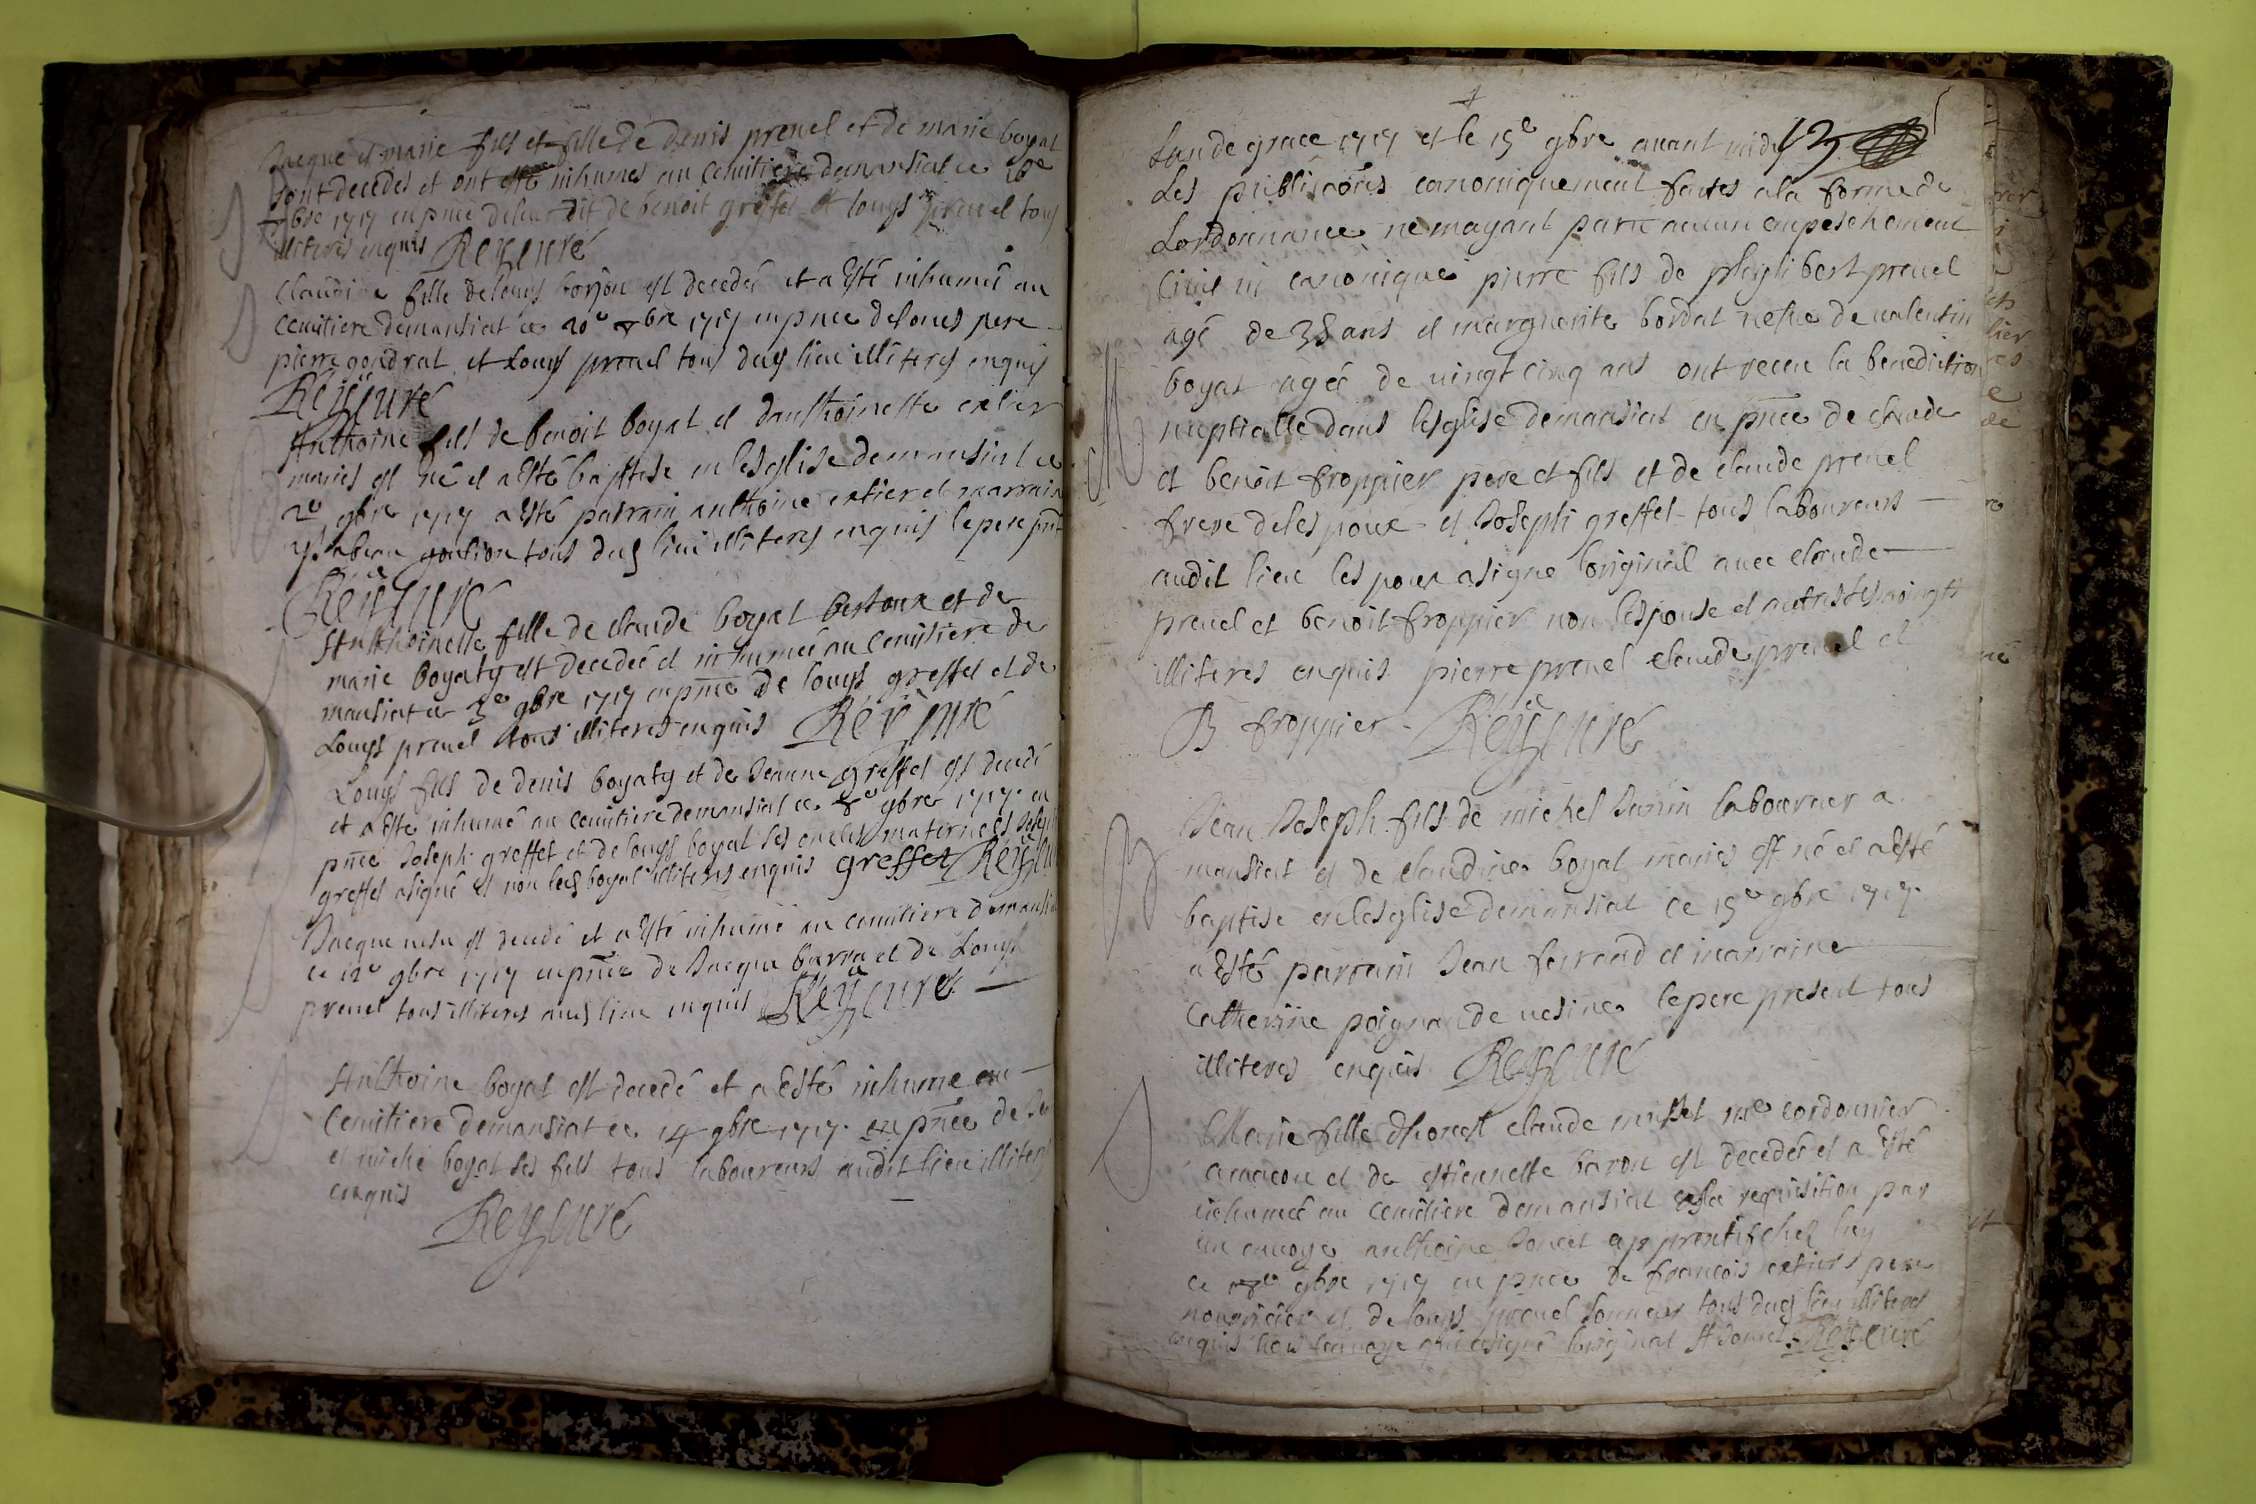 Jacque et marie fils et fille de denis prevel et de marie boyat
sont decedes et ont esté inhumes au cemitiere demansiat ce
bre 1717 en pnce de benoit greffet et louys prevel tous
illiteres enquis Rey curé
Claudine fille de louys borjon est decedée et a esté inhumée au
cemitiere demansiat ce 20e bre 1717 en pnce de louis pere
pierre gondrat et Louys prevel tous duq lieu illiteres enquis
Rey curé
Anthoine fils de benoit boyat et danthoinette
maries est né et a esté baptise en lesglise demansiat ce
2e gbre 1717 a esté parrain anthoine et marraine
tous duq lieu illiteres enquis le pere pnt
Rey curé
Anthoinette fille de claude boyat et de
marie boyaty est decedée et inhumée au cemitiere de
mansiat ce 3e gbre 1717 en pnce de louys greffet et de
Louys prevel tous illiteres enquis Rey curé
Louys fils de denis boyaty et de Jeanne greffet est decedé
et a esté inhumé au cemitiere demansiat ce 8e gbre 1717 en
pnce Joseph greffet et de louys boyat ses oncles maternels Joseph
greffet a signé et non led boyat illiteres enquis greffet Rey
Jacque est decedé et a esté inhumé au cemitiere demansiat
ce 12e gbre 1717 en pnce de Jacque barra et de Louys
prevel tous illiteres duq lieu enquis Rey curé
Anthoine boyat est decedé et a esté inhume au
Cemitiere demansiat ce 14 gbre 1717 en pnce de
et miché boyat ses fils tous laboureurs audit lieu illiteres
enquis
Rey curé
Lan de grace 1717 et le 15e gbre avant midy 13
Les publicaons canoniquement faites a la forme de
Lordonnance ne mayant paru aucun empeschement
Civil ni canonique pierre fils de phylibert prevel
agé de 38 ans et marguerite bordat de valentin
boyat agée de vingt cinq ans ont receu la benediction
nuptialle dans lesglise demansiat en pnce de claude
et benoit froppier pere et fils et de claude prevel
frere delespoux et Joseph greffet tous laboureurs
audit lieu lespoux a signe loriginal avec claude
prevel et benoit froppier non lespouse et autres tesmoingts
illiteres enquis pierre prevel claude prevel et
B froppier Rey curé
Jean Joseph fils de michel Janin laboureur a
mansiat et de claudine boyat maries est né et a esté
baptise en lesglise demansiat ce 15e gbre 1717
a esté parrain Jean ferrand et marraine
Catherine poignan de vesines le pere present tous
illiteres enquis Rey curé
Marie fille dhonest claude me cordonnier
amacon et de estiennette baron est decedée et a esté
inhumée au cemitiere demansiat requisition par
un envoye anthoine apprentif chez luy
ce gbre 1717 en pnce de francois pere
nourricier et de louys prevel sonneur tous duq lieu illiteres
enquis a signé loriginal Rey curé